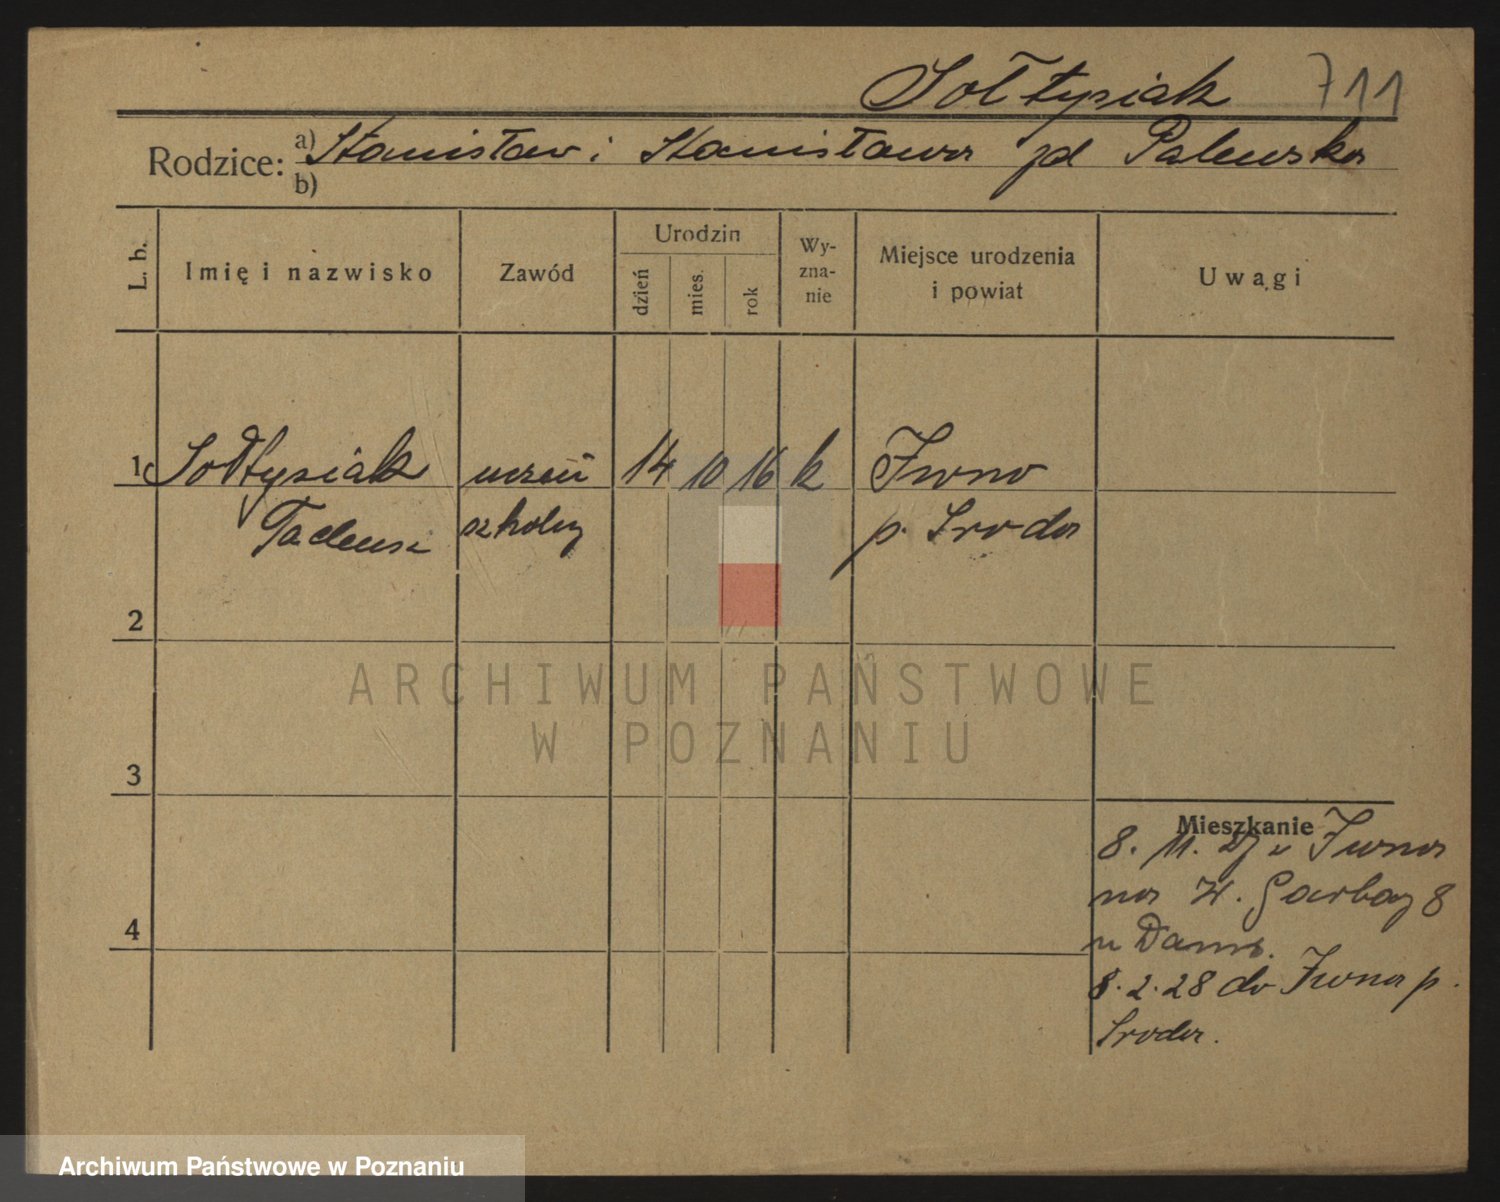 Sołtysiak 711
Rodzice: a) Stanisław i Stanisława zd Palewska
b)
L. b.
Imię i nazwisko
Zawód
Urodzin
dzień
mies.
rok
Wy-
zna-
nie
Miejsce urodzenia
i powiat
Uwagi
1 Sołtysiak uczeń 14 10 16 k Iwno
Tadeusz szkolny p. Środa
2
ARCHIWUM PAŃSTWOWE
W POZNANIU
3
Mieszkanie
8. 11. 27 z Iwna
na W. Garbary 8
u Dams.
8. 2. 28 do Iwna p.
Środa.
4
Archiwum Państwowe w Poznaniu